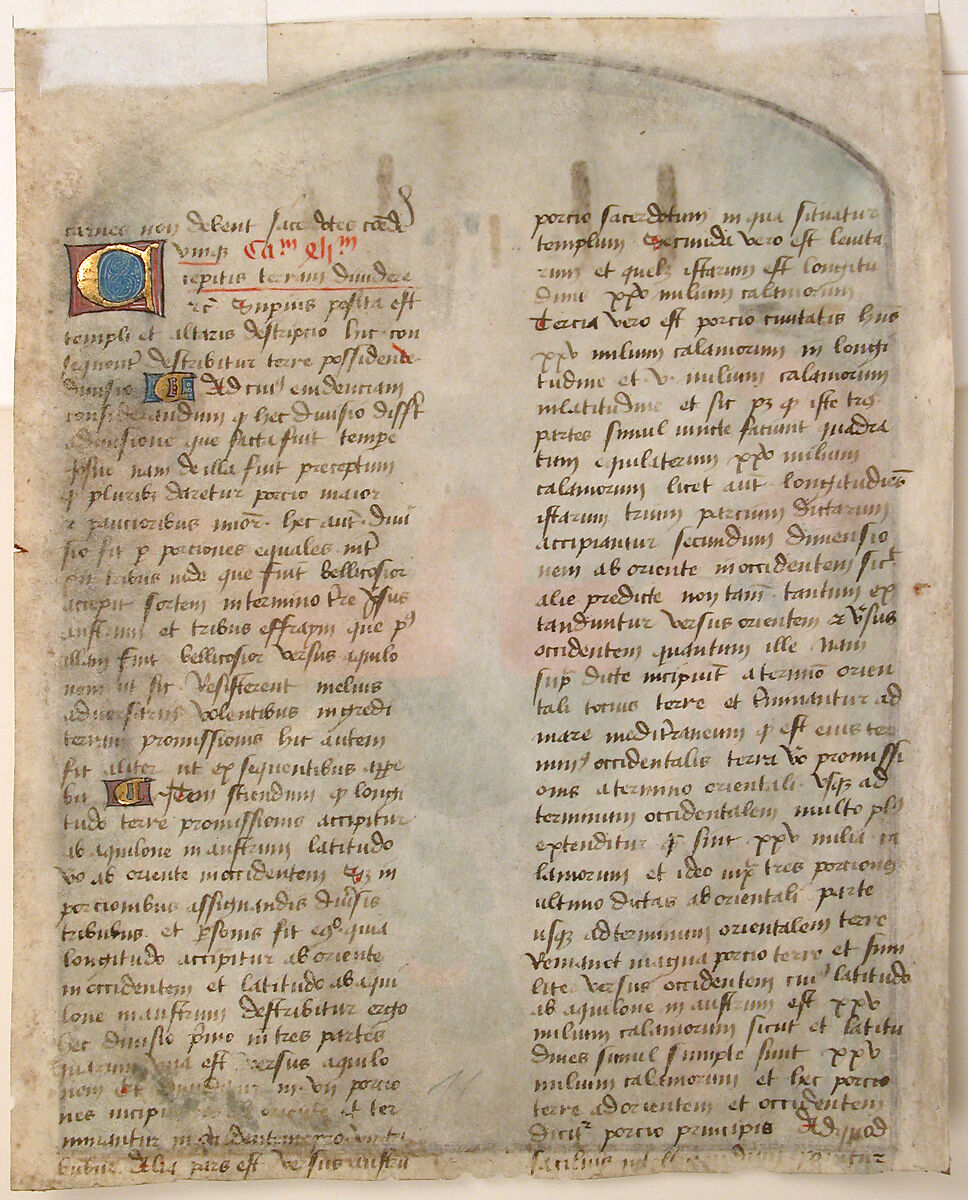 carnes non debent sacerdotes cōede
vnusq Caᵐ xlijᵐ
Cepitis terram diuidere
rc̄ Supius posita est
templi et altaris descripcio hic con
sequent̄ describitur terre possidende
diuisio Ad cuiꝰ euidenciam
considerandum ꝙ hec diuisio differt
a diuisione que facta fuit tempe
iosue nam de illa fuit preceptum
ꝙ pluribꝫ daretur porcio maior
⁊ paucioribus minor hec aut̄ diui
sio fit ꝑ porciones equales int̄
xii tribus iude que fuit bellicosior
accepit sortem in termino tr̄re v̄sus
austrum et tribus effraym que pꝰ
illam fuit bellicosior versus aquilo
nem ut sic resisterent melius
aduersariis volentibus ingredi
terram promissionis hic autem
fit aliter ut ex sequentibus appe
bit Item sciendum ꝙ longi
tudo terre promissionis accipitur
ab aquilone in austrum latitudo
v̊o ab oriente in occidentem Sꝫ in
porcionibus assignandis diu̓sis
tribubus et ꝑsonis fit eqꝰ quia
longitudo accipitur ab oriente
in occidentem et latitudo ab aqui
lone in austrum describitur ergo
hec diuisio p̓mo in tres partes
quarum una est versus aquilo
nem et diuiditur in vii porcio
nes incipiendo ab oriente et ter
minantur in occidentem
bubus Alia pars est versus austrū
porcio sacerdotum in qua situatur
templum Secunda vero est leuita
rum et quelꝫ istarum est longitu
dine xxv milium calamorum
Tercia vero est porcio ciuitatis huiꝰ
xxv milium calamorum in longi
tudine et v milium calamorum
in latitudine et sic pꝫ ꝙ iste tres
partes simul iuncte faciunt quadra
tum equilaterum xxv milium
calamorum licet aut̄ longitudines
istarum trium parcium dictarum
accipiantur secundum dimensio
nem ab oriente in occidentem sicut
alie predicte non tam̄ tantum ex
tanduntur versus orientem ⁊ v̓sus
occidentem quantum ille nam
supᵃ dicte incipiūt a termino orien
tali tocius terre et t̓minantur ad
mare medit̓raneum ꝙ est eius ter
minꝰ occidentalis terra v̊o promissi
onis a termino orientali vsqꝫ ad
terminum occidentalem multo plꝰ
extenditur qᵃ sint xxv milia ca
lamorum et ideo iuxᵃ tres porciones
ultimo dictas ab orientali parte
usqꝫ ad terminum orientalem terre
remanet magna porcio terre et simi
liter versus occidentem cuiꝰ latitudo
ab aquilone in austrum est xxv
milium calamorum sicut et latitu
dines simul sumpte sunt xxv
milium calamorum et hec porcio
terre ad orientem et occidentem
dicit̄ porcio principis Ad quod